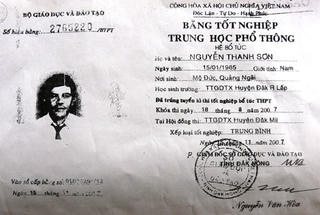 BỘ GIÁO DỤC VÀ ĐÀO TẠO
Số hiệu bằng: 2765220 /THPT
CỘNG HÒA XÃ HỘI CHỦ NGHĨA VIỆT NAM
Độc Lập - Tự Do - Hạnh Phúc
BẰNG TỐT NGHIỆP
TRUNG HỌC PHỔ THÔNG
HỆ BỔ TÚC
Họ và tên: NGUYỄN THANH SƠN
Ngày sinh 15/01/1985 Giới tính: Nam
Mộ Đức, Quảng Ngãi
Học sinh trường: TTGDTX Huyện Đăk R Lấp
Đã trúng tuyển kì thi tốt nghiệp bổ túc THPT
Khóa thi ngày 18 tháng 8 năm 2007
Tại Hội đồng thi: TTGDTX Huyện Đăk Mil
Xếp loại tốt nghiệp: TRUNG BÌNH
năm 2007
GIÁM ĐỐC SỞ GIÁO DỤC VÀ ĐÀO TẠO
TỈNH ĐĂK NÔNG
Vào sổ cấp bằng số
Nguyễn Văn Hòa